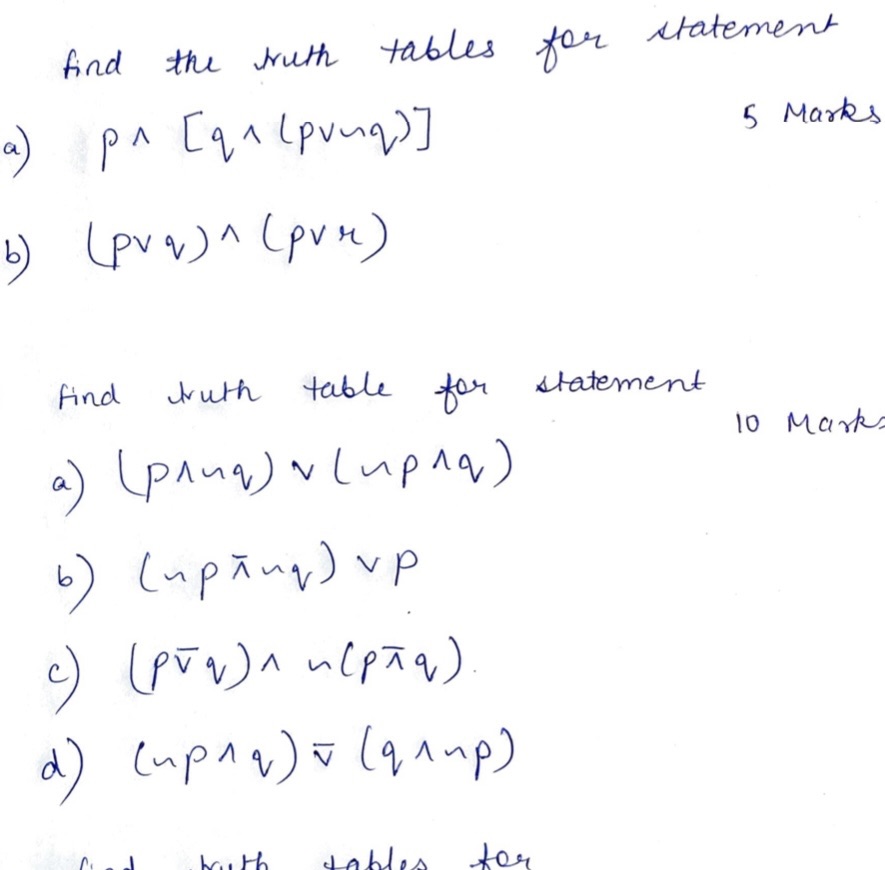 find the truth tables for statement
5 Marks
a) p ∧ [q ∧ (p∨~q)]
b) (p∨q) ∧ (p∨r)
find truth table for statement
10 Marks
a) (p∧~q) ∨ (~p∧q)
b) (~p ⊼ ~q) ∨ p
c) (p ⊽ q) ∧ ~(p ⊼ q).
d) (~p∧q) ⊽ (q∧~p)
find truth tables for